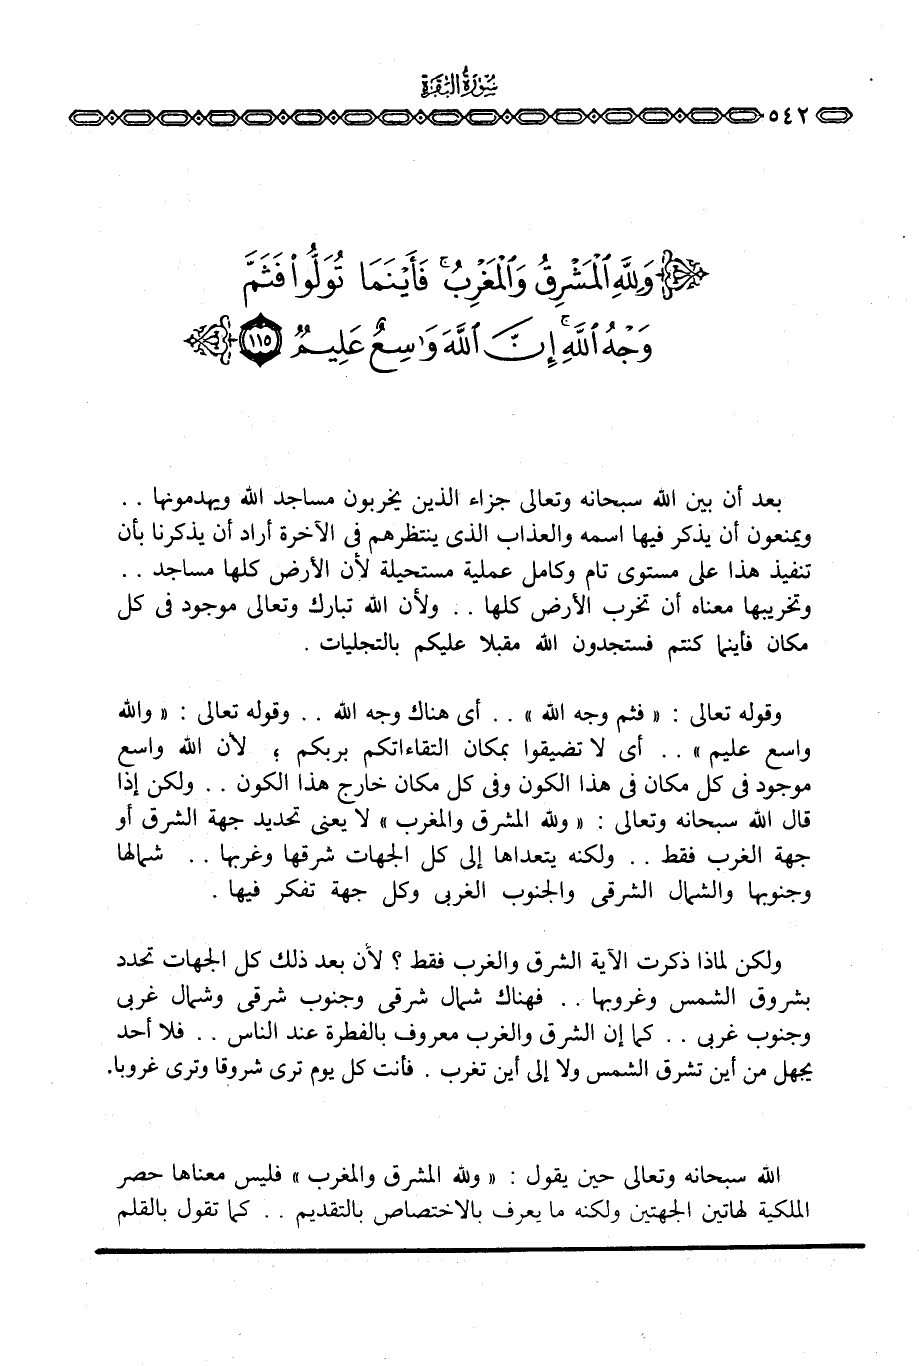 سُورَةُ البَقَرَة
٥٤٢
وَلِلَّهِ ٱلْمَشْرِقُ وَٱلْمَغْرِبُ ۚ فَأَيْنَمَا تُوَلُّوا۟ فَثَمَّ
وَجْهُ ٱللَّهِ ۚ إِنَّ ٱللَّهَ وَٰسِعٌ عَلِيمٌ ١١٥
بعد أن بين الله سبحانه وتعالى جزاء الذين يخربون مساجد الله ويهدمونها . .
ويمنعون أن يذكر فيها اسمه والعذاب الذى ينتظرهم فى الآخرة أراد أن يذكرنا بأن
تنفيذ هذا على مستوى تام وكامل عملية مستحيلة لأن الأرض كلها مساجد . .
وتخريبها معناه أن تخرب الأرض كلها . . ولأن الله تبارك وتعالى موجود فى كل
مكان فأينما كنتم فستجدون الله مقبلا عليكم بالتجليات .
وقوله تعالى : « فثم وجه الله » . . أى هناك وجه الله . . وقوله تعالى : « والله
واسع عليم » . . أى لا تضيقوا بمكان التقاءاتكم بربكم ؛ لأن الله واسع
موجود فى كل مكان فى هذا الكون وفى كل مكان خارج هذا الكون . . ولكن إذا
قال الله سبحانه وتعالى : « ولله المشرق والمغرب » لا يعنى تحديد جهة الشرق أو
جهة الغرب فقط . . ولكنه يتعداها إلى كل الجهات شرقها وغربها . . شمالها
وجنوبها والشمال الشرقى والجنوب الغربى وكل جهة تفكر فيها .
ولكن لماذا ذكرت الآية الشرق والغرب فقط ؟ لأن بعد ذلك كل الجهات تحدد
بشروق الشمس وغروبها . . فهناك شمال شرقى وجنوب شرقى وشمال غربى
وجنوب غربى . . كما إن الشرق والغرب معروف بالفطرة عند الناس . . فلا أحد
يجهل من أين تشرق الشمس ولا إلى أين تغرب . فأنت كل يوم ترى شروقا وترى غروبا.
الله سبحانه وتعالى حين يقول : « ولله المشرق والمغرب » فليس معناها حصر
الملكية لهاتين الجهتين ولكنه ما يعرف بالاختصاص بالتقديم . . كما تقول بالقلم